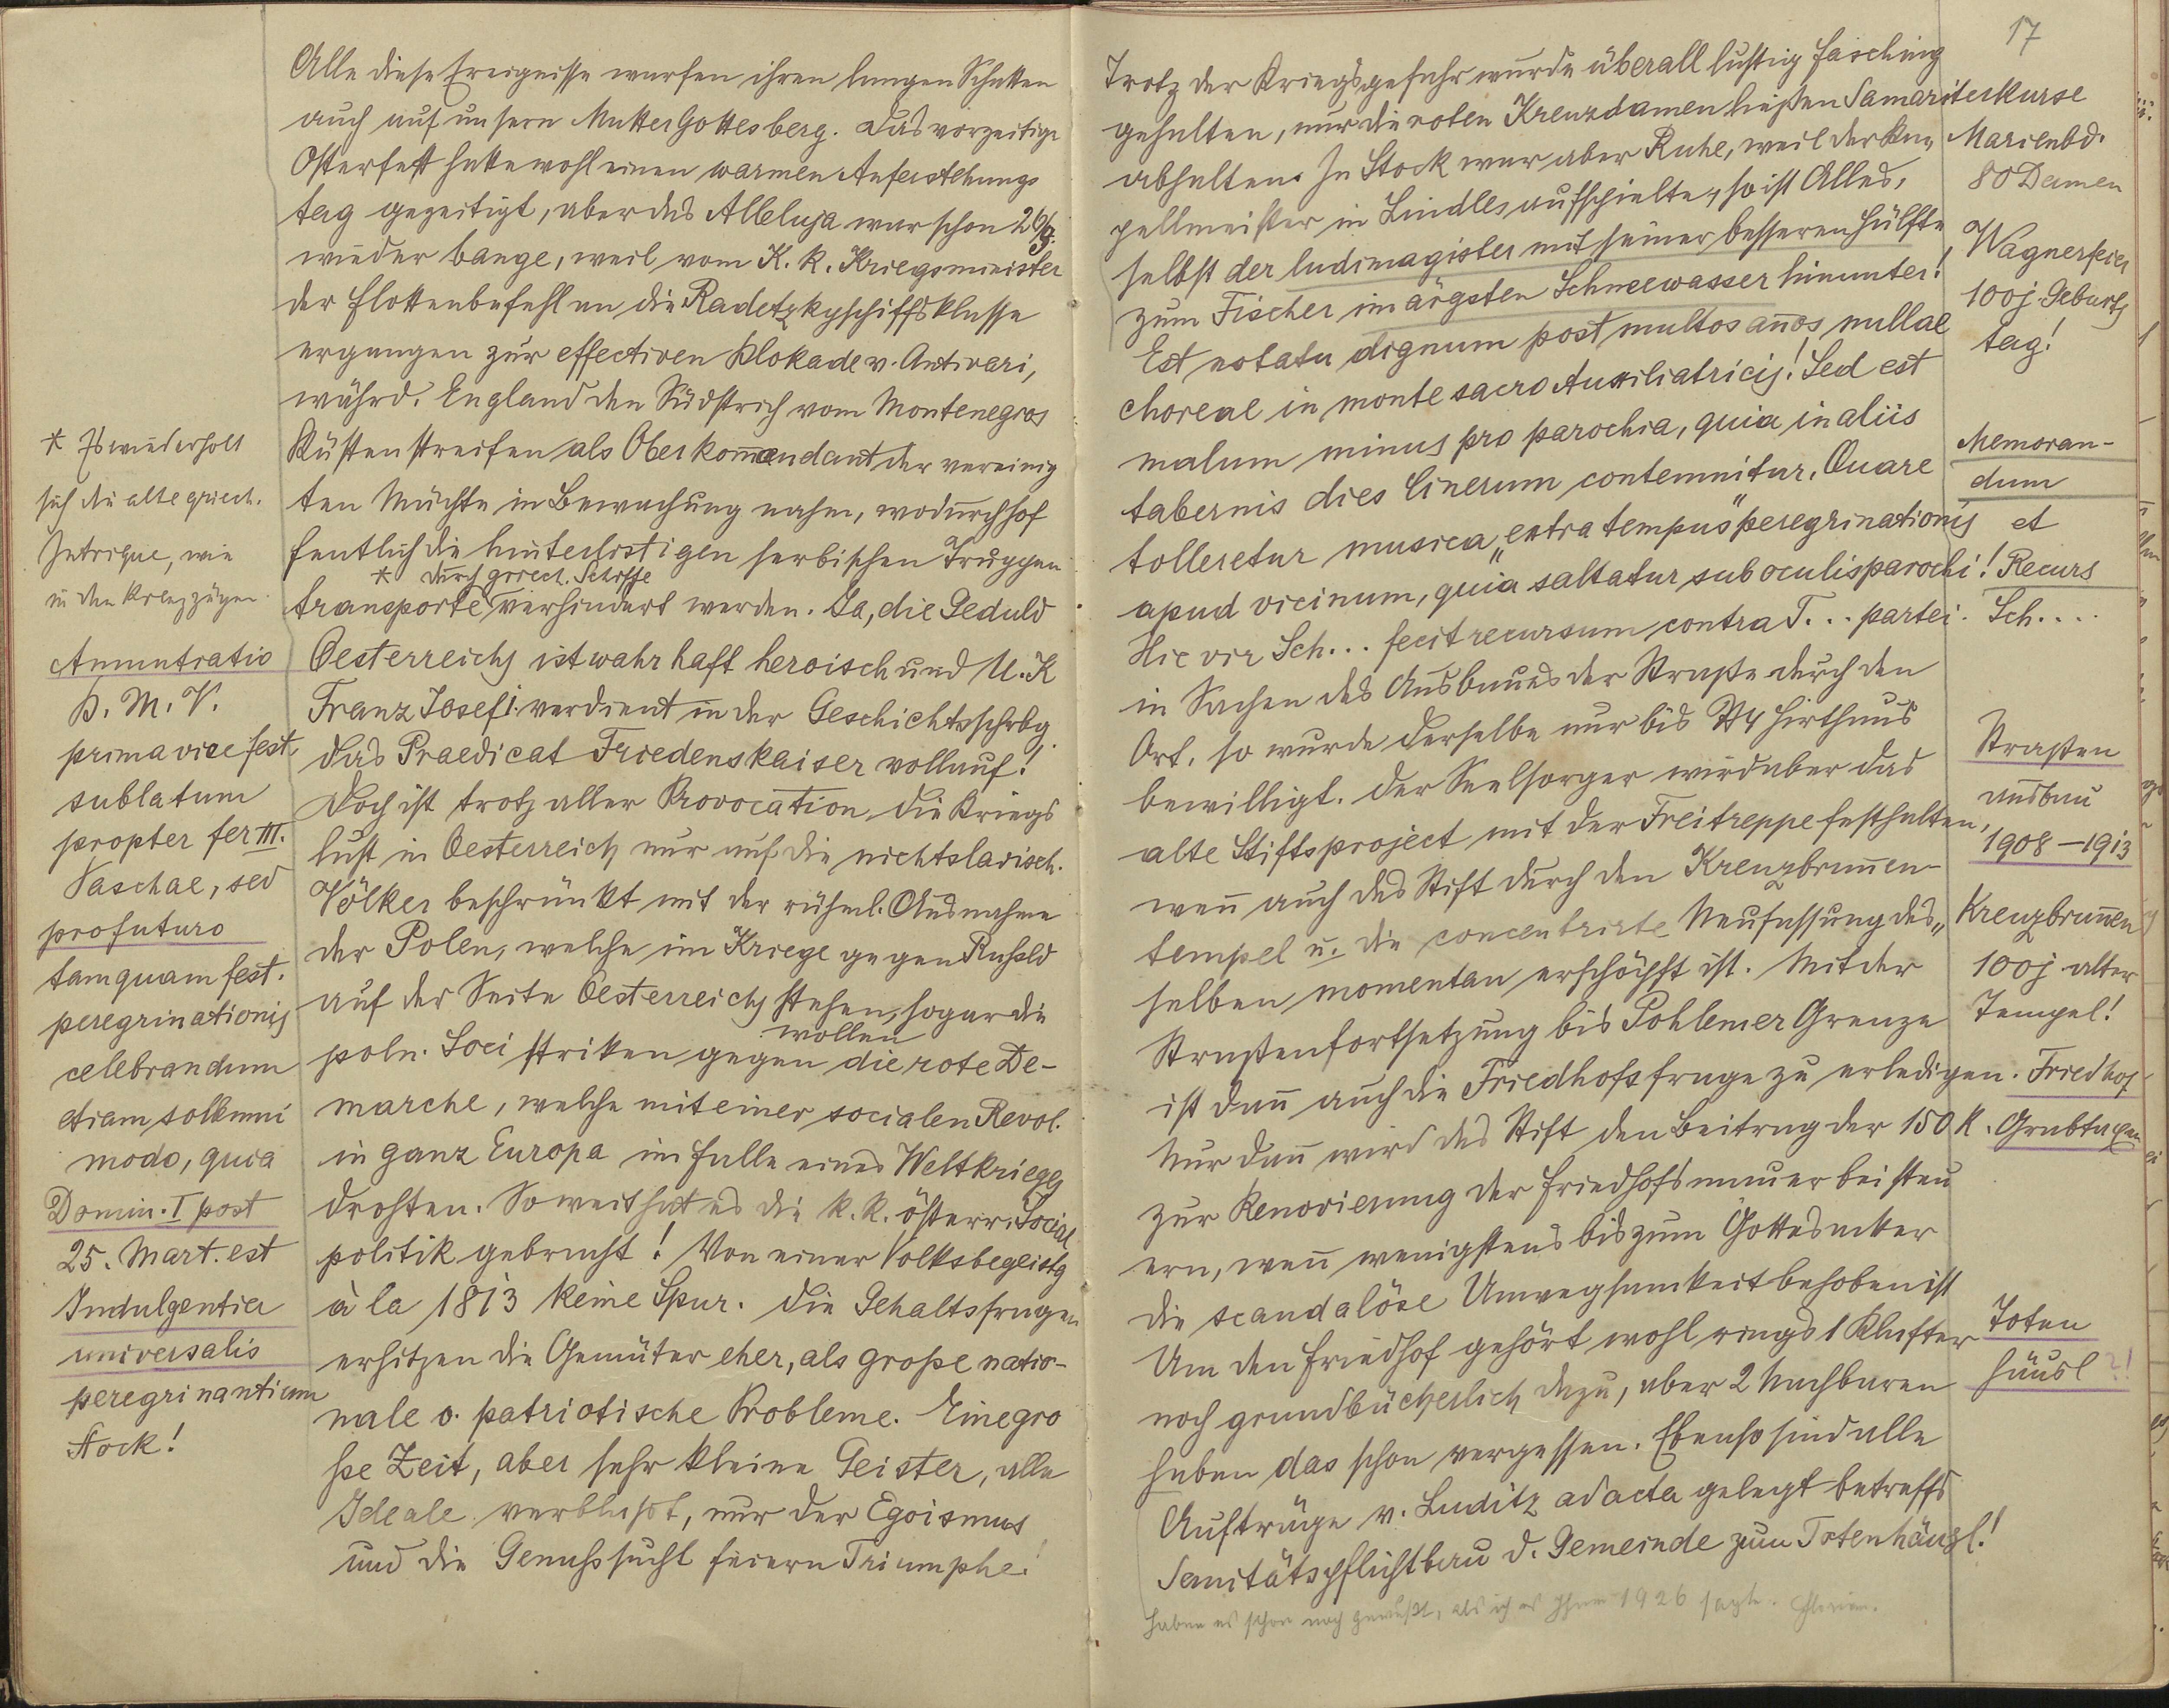 Alle diese Ereignisse warfen ihren langen Schatten
auch auf unsern MutterGottesberg. Das vorzeitige
Osterfest hatte wohl einen warmen Auferstehungs
tag gezeitigt, aber das Alleluja war schon 26/3.
wieder bange, weil vom K. k. Kriegsminister
der Flottenbefehl an die Radetzkyschiffsklasse
ergangen zur effectiven Blokade v. Antivari,
währd. England den Südstrich vom Montenegros
Küstenstreifen als Oberkommandant der vereinig
ten Mächte in Bewachung nahm, wodurch hof
fentlich die hinterlistigen serbischen Truppen
* durch griech. Schiffe
transporte verhindert werden. Ja, die Geduld
Oesterreichs ist wahrhaft heroisch und U. K
Franz Josef I. verdient in der Geschichtsschrbg
das Praedicat Friedenskaiser vollauf!
Doch ist trotz aller Provocation die Kriegs
lust in Oesterreich nur auf die nichtslavisch.
Völker beschränkt mit der rühml. Ausnahme
der Polen, welche im Kriege gegen Rußld
auf der Seite Oesterreichs stehen, sogar die
wollen
poln. Soci striken gegen die rote De-
marche, welche mit einer socialen Revol.
in ganz Europa im Falle eines Weltkrieges
drohten. So weit hat es die k. k. österr. Social
politik gebracht! Von einer Volksbegeistg
à la 1813 keine Spur. Die Gehaltsfragen
erhitzen die Gemüter eher, als große natio-
nale o. patriotische Probleme. Eine gro
ße Zeit, aber sehr kleine Geister, alle
Ideale verblaßt, nur der Egoismus
und die Genußsucht feiern Triumphe!
* Es wiederholt
sich die alte griech.
Intrique, wie
in den Kreuzzügen.
Annuntiatio
B. M. V.
prima vice fest.
sublatum
propter fer III.
Paschae, sed
pro futuro
tamquam fest.
peregrinationis
celebrandum
etiam sollemni
modo, quia
Domin. I post
25. Mart. est
Indulgentia
universalis
peregrinantium
Stock!
17
Trotz der Kriegsgefahr wurde überall lustig Fasching
gehalten, nur die roten Kreuzdamen ließen Samariterkurse
abhalten. In Stock war aber Ruhe, weil der Ka„
pellmeister in Lindles aufspielte, so ist Alles,
selbst der ludimagister mit seiner besseren Hälfte,
zum Fischer im ärgsten Schneewasser hinunter!
Est notatu dignum post multos annos nullae
choreae in monte sacro Auxiliatricis! Sed est
malum minus pro parochia, quia in aliis
tabernis dies Cinerum contemnitur. Quare
tolleretur musica „extra tempus" peregrinationis
apud vicinum, quia saltatur sub oculis parochi!
Hic vir Sch... fecit recursum contra T... partei.
in Sachen des Ausbaues der Straße durch den
Ort, so wurde derselbe nur bis N 4 Hirthaus
bewilligt. Der Seelsorger wird aber das
alte Stiftsproject mit der Freitreppe festhalten,
wenn auch das Stift durch den Kreuzbrunnen-
tempel u. die concentrirte Neufassung des„
selben momentan erschöpft ist. Mit der
Straßenfortsetzung bis Pohlemer Grenze
ist dann auch die Friedhofsfrage zu erledigen.
Nur dann wird das Stift den Beitrag der 150 K.
zur Renovierung der Friedhofsmauer beisteu
ern, wenn wenigstens bis zum Gottesacker
die scandalöse Unwegsamkeit behoben ist
Um den Friedhof gehört wohl rings 1 Klafter
noch grundbücherlich dazu, aber 2 Nachbaren
haben das schon vergessen. Ebenso sind alle
Aufträge v. Luditz ad acta gelegt betreffs
Sanitätspflichtbau d. Gemeinde zum Totenhäusl!
haben es schon noch gewußt, als ich es Ihnen 1926 sagte.
Marienbd.
80 Damen
Wagnerfeier
100j. Geburts
tag!
Memoran-
dum
et
Recurs
Sch....
Straßen
ausbau
1908-1913
Kreuzbrunnen
100j. alter
Tempel!
Friedhof
Grabtaxen
Toten
häusl ?!